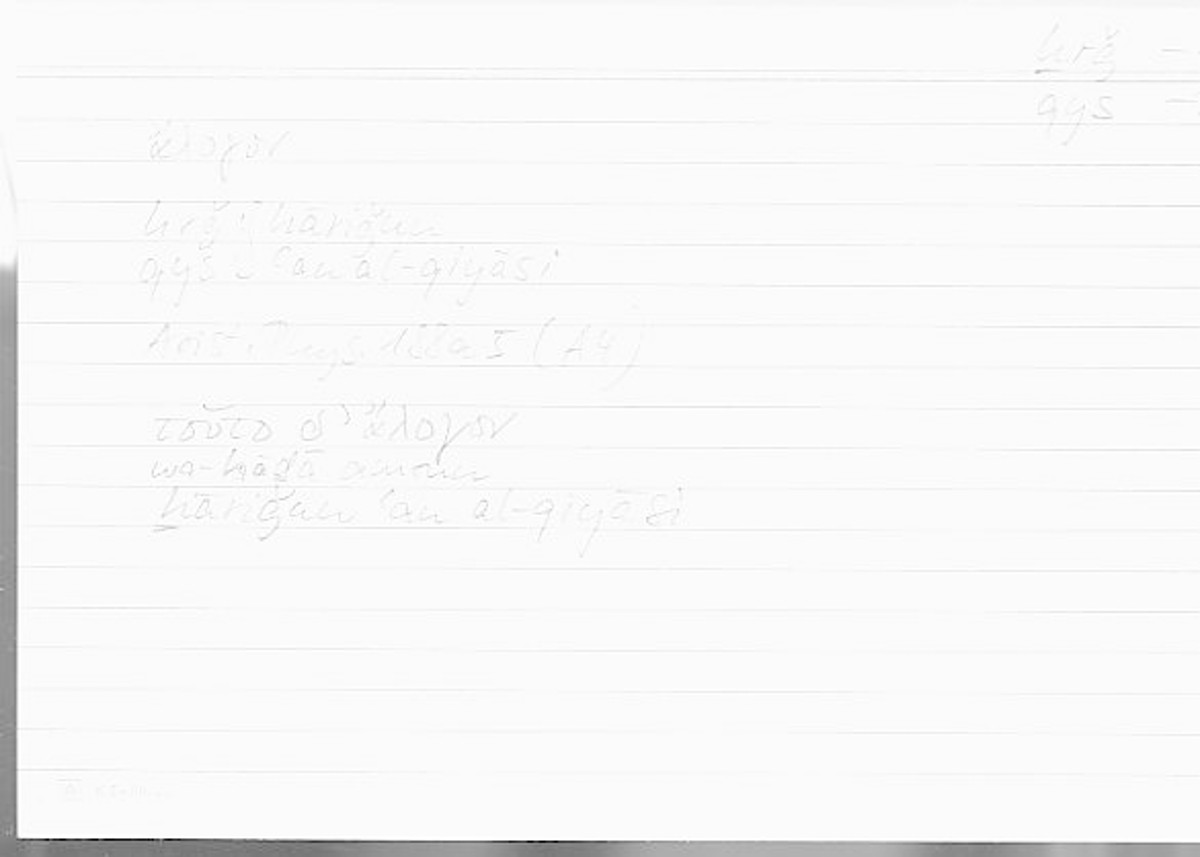 ḫrǧ —
qys —
ἄλογον
ḫrǧ : ḫāriǧun
qys : ʿan al-qiyāsi
Arist. Phys. (A4)
τοῦτο δ' ἄλογον
wa-hāḏā amrun
ḫāriǧun ʿan al-qiyāsi